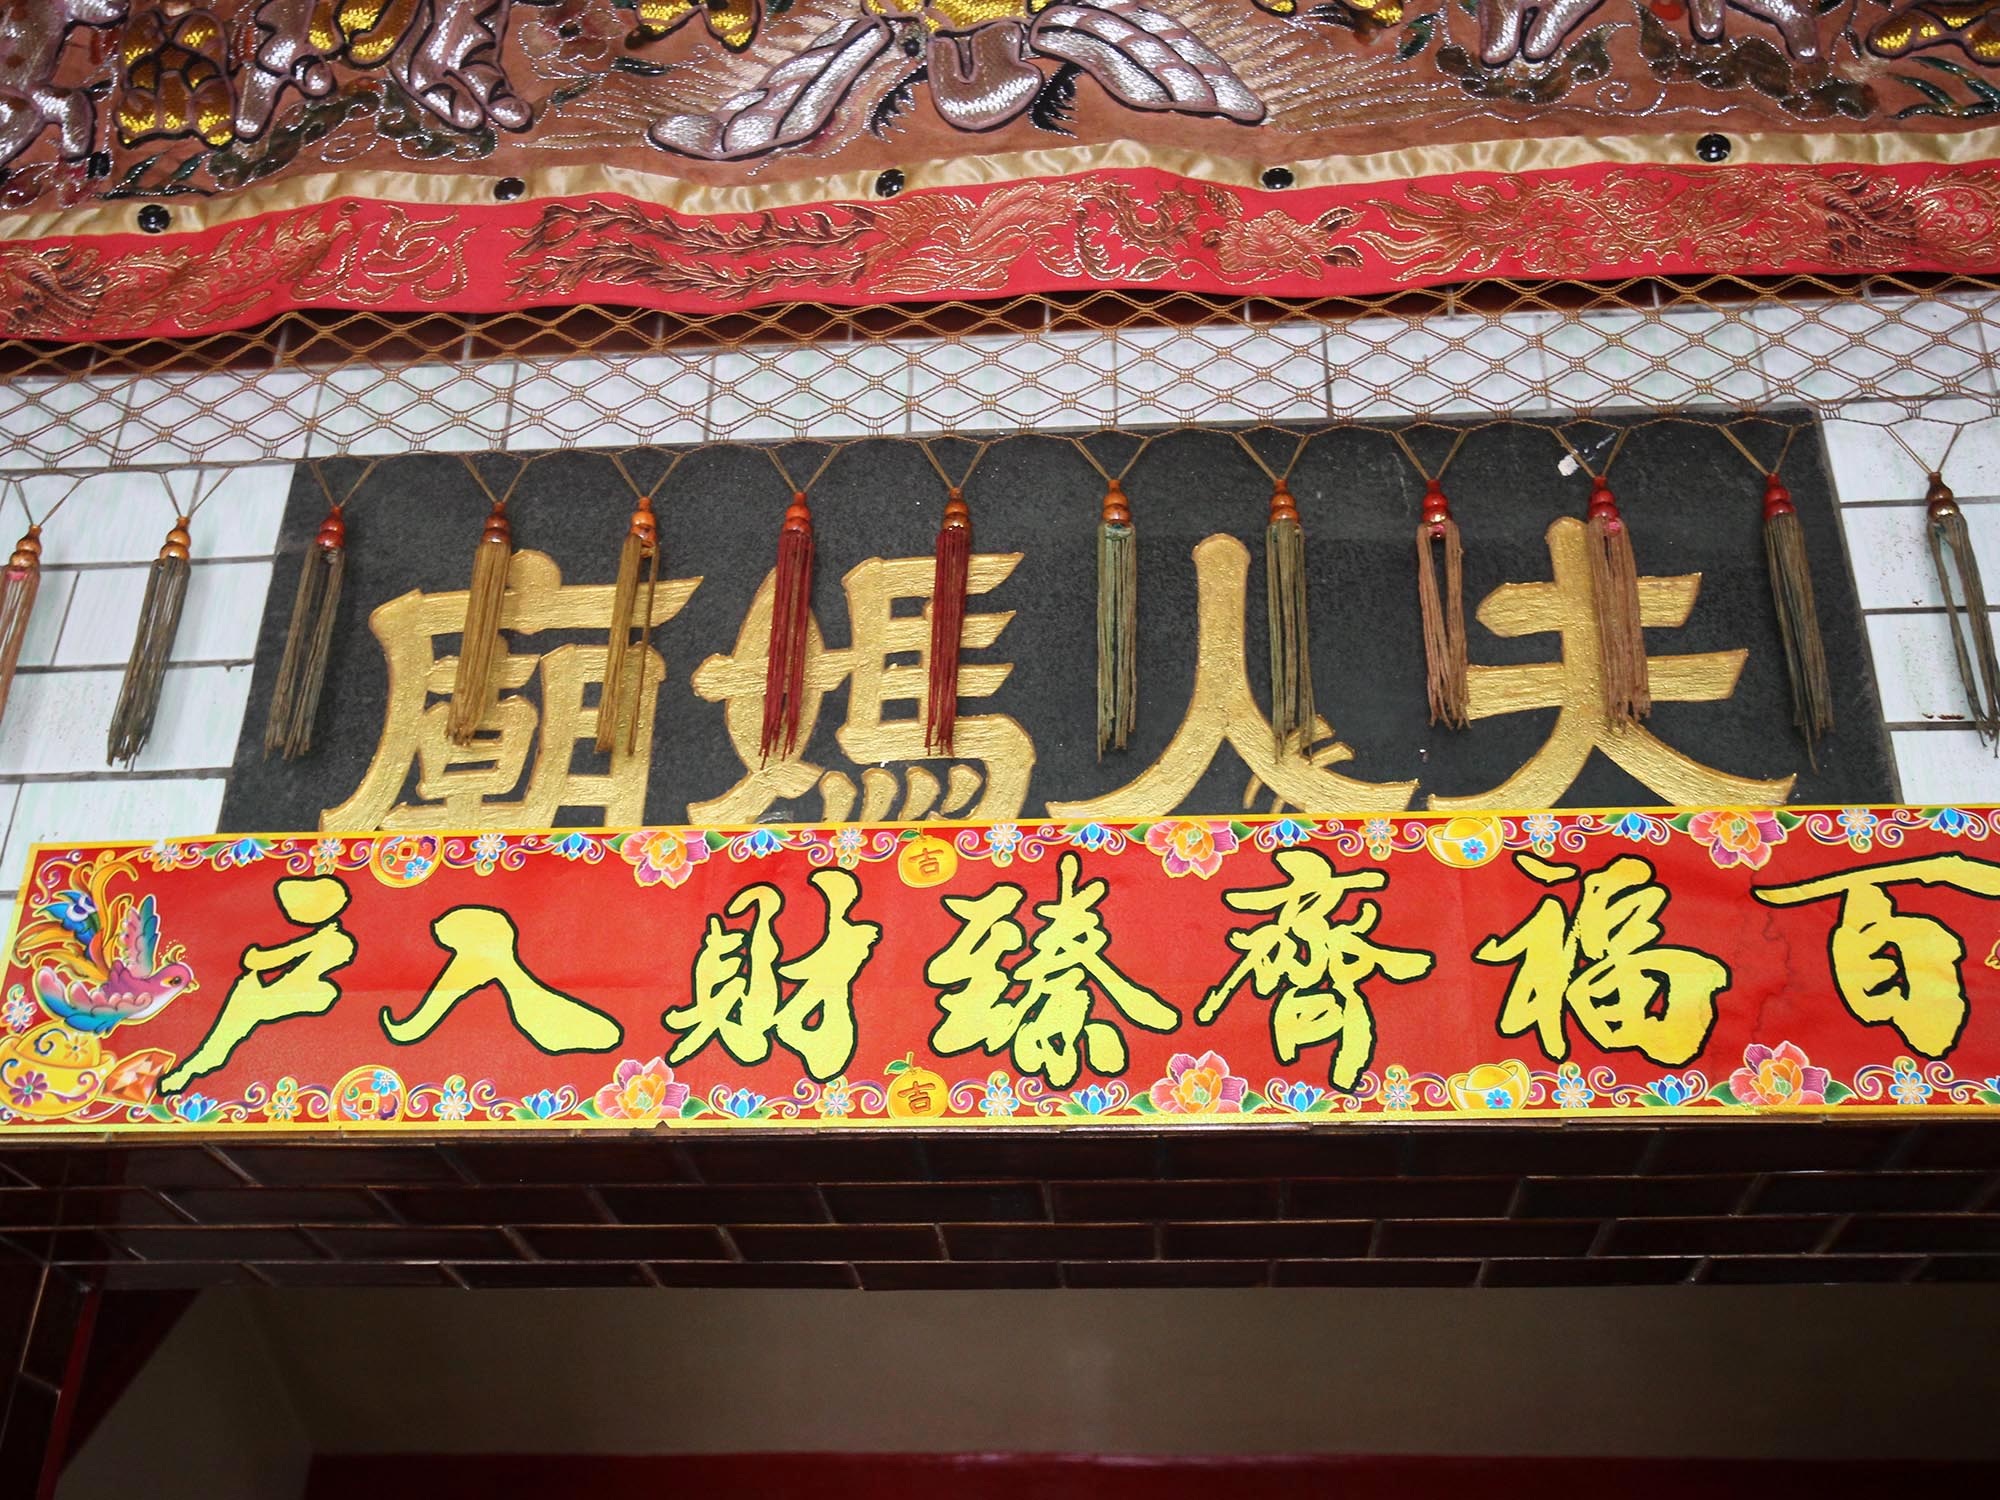 夫人媽廟
百福齊臻財入戶
吉
吉